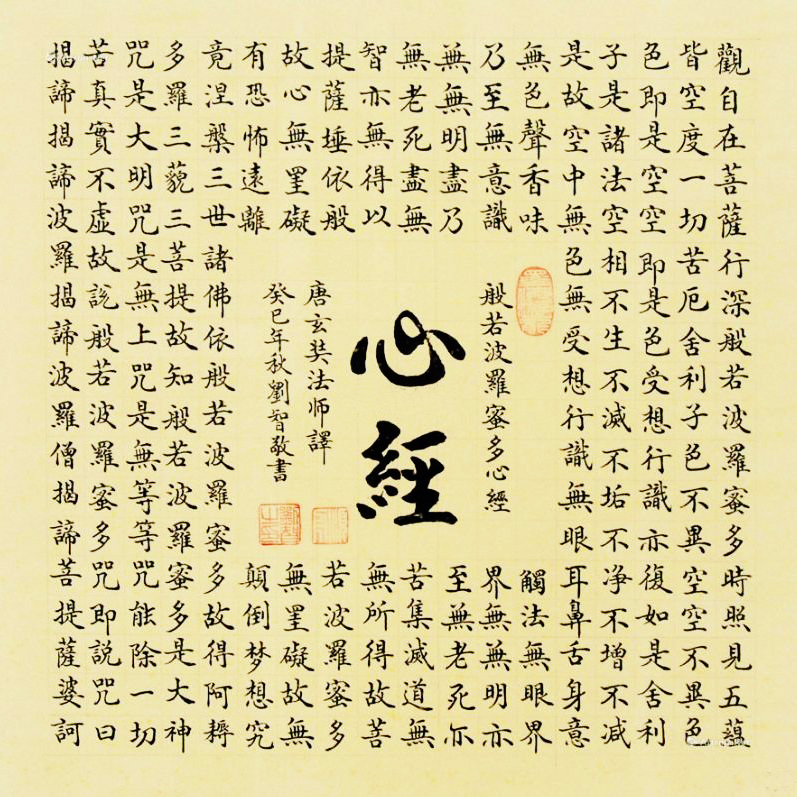 觀自在菩薩行深般若波羅蜜多時照見五蘊
皆空度一切苦厄舍利子色不異空空不異色
色即是空空即是色受想行識亦復如是舍利
子是諸法空相不生不滅不垢不净不增不减
是故空中無色無受想行識無眼耳鼻舌身意
無色聲香味
觸法無眼界
乃至無意識
界無無明亦
無無明盡乃
至無老死亦
無老死盡無
苦集滅道無
智亦無得以
無所得故菩
提薩埵依般
若波羅蜜多
故心無罣礙
無罣礙故無
有恐怖遠離
顛倒梦想究
竟涅槃三世諸佛依般若波羅蜜多故得阿耨
多羅三藐三菩提故知般若波羅蜜多是大神
咒是大明咒是無上咒是無等等咒能除一切
苦真實不虛故說般若波羅蜜多咒即說咒曰
揭諦揭諦波羅揭諦波羅僧揭諦菩提薩婆訶
般若波羅蜜多心經
心經
唐玄奘法师譯
癸巳年秋劉智敬書